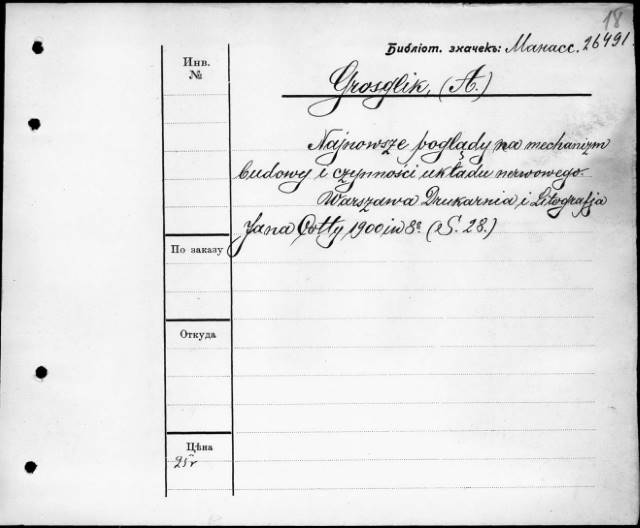 18
Библіот. значекъ: Манасс. 26491
Инв.
№
Grosglik, (A.)
Najnowsze poglądy na mechanizm
budowy i czynności układu nerwowego.
Warszawa Drukarnia i Litografja
Jana Cotty 1900 in 8º (S. 28.)
По заказу
Откуда
Цѣна